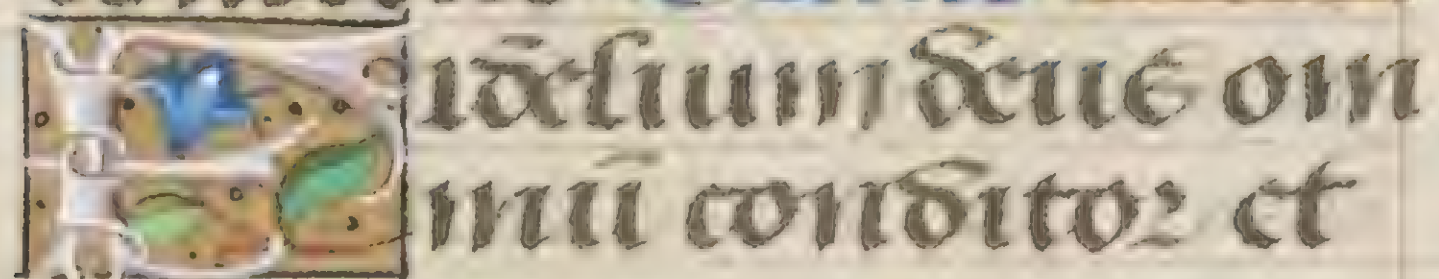 Fidēlium deus om
niū conditor et